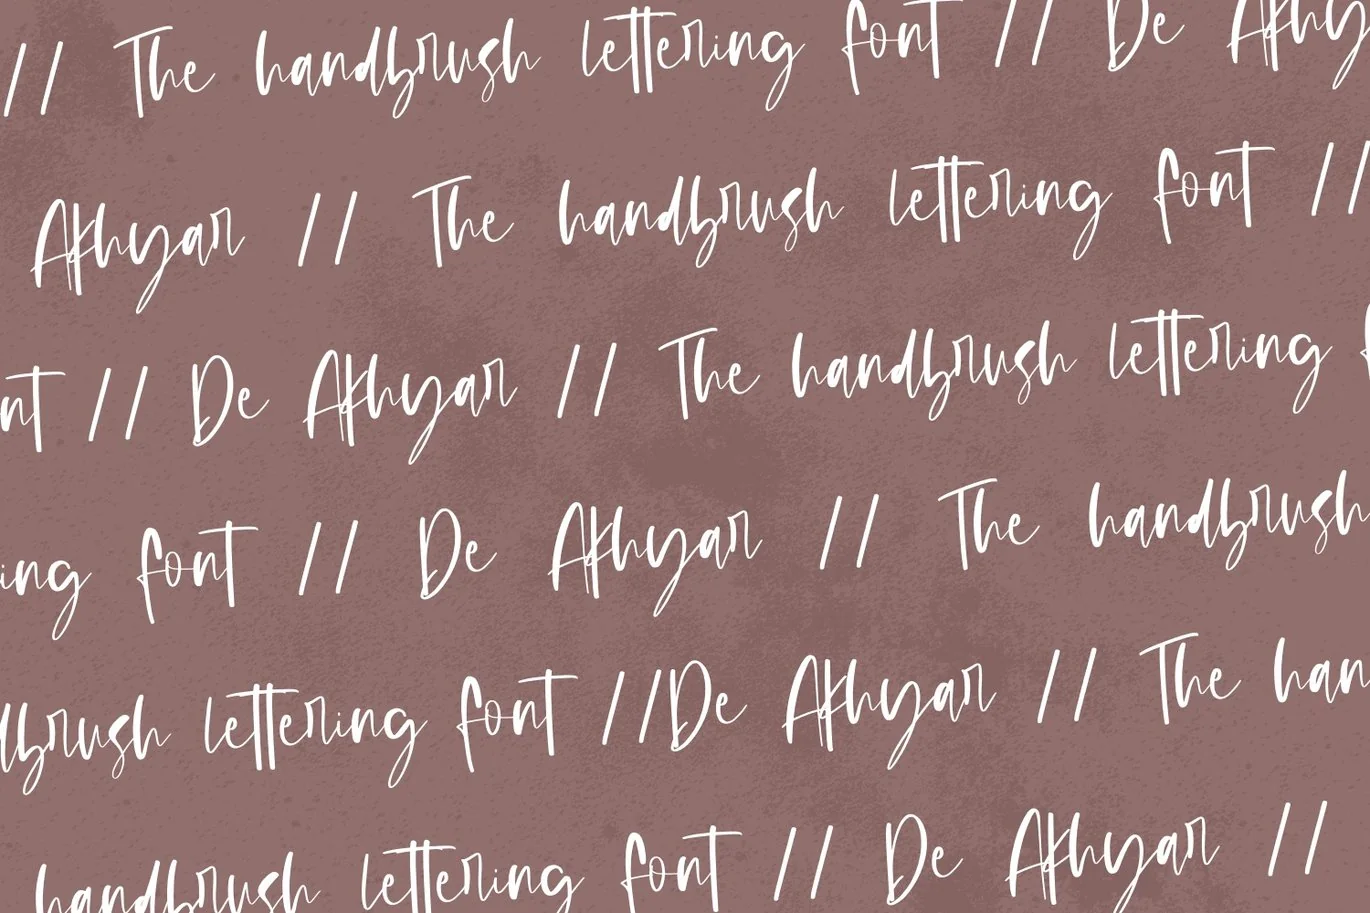 // The handbrush lettering font // De Akhy
Akhyar // The handbrush lettering font //
nt // De Akhyar // The handbrush lettering f
ing font // De Akhyar // The handbrush
dbrush lettering font //De Akhyar // The han
handbrush lettering font // De Akhyar //